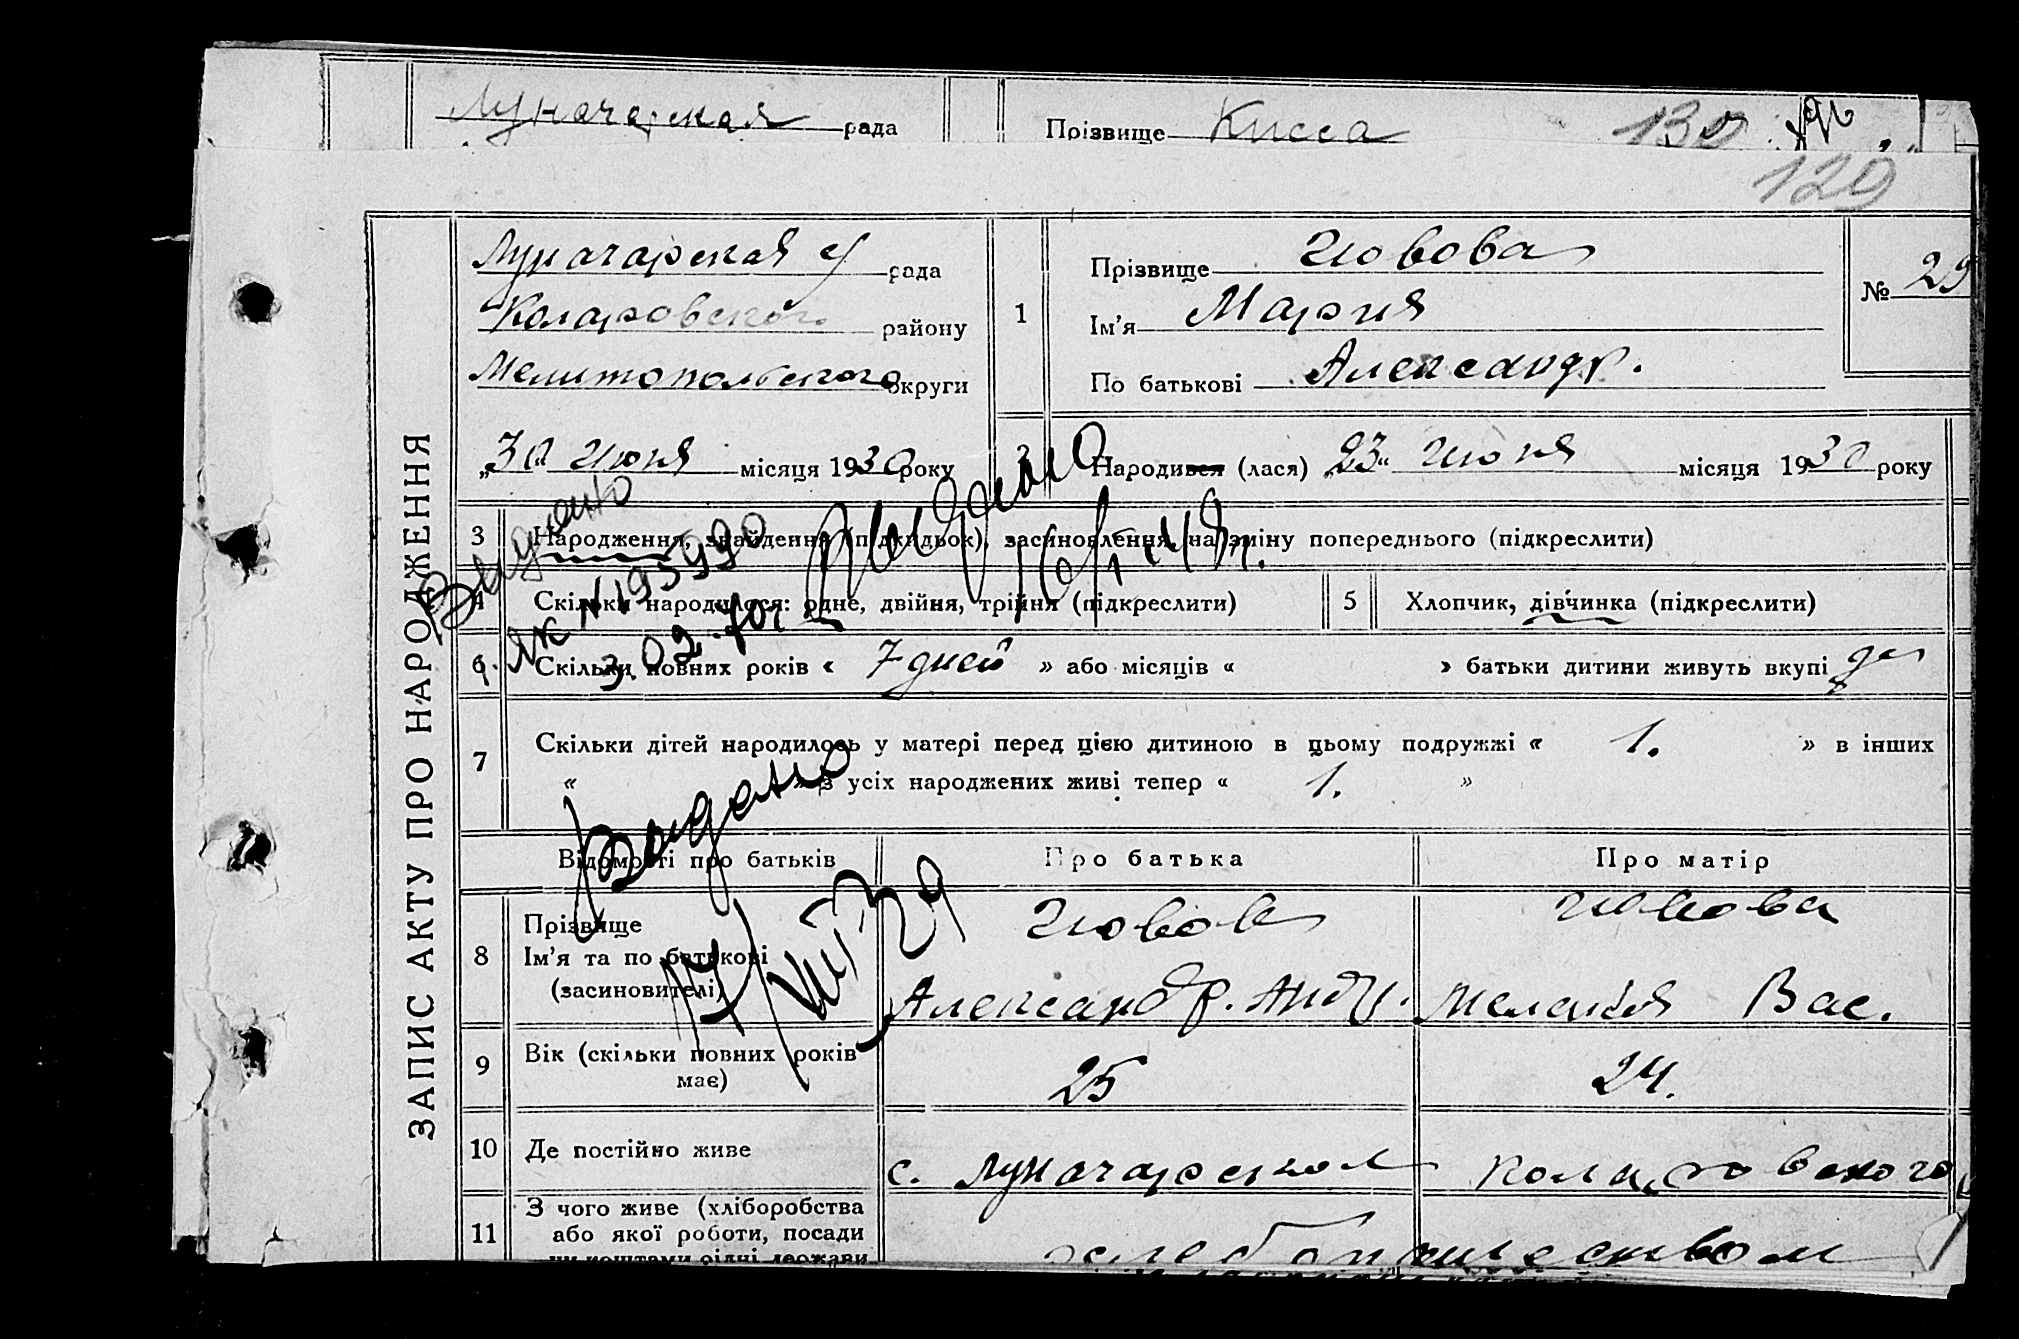 Луначарская рада
Прізвище Кисса
130
129
ЗАПИС АКТУ ПРО НАРОДЖЕННЯ
Луначарская рада
Коларовского району
Мелитопольского округи
„30“ июня місяця 1930 року
1
Прізвище Иовова
Ім'я Мария
По батькові Александр.
№ 29
2 Народився (лася) „23“ июня місяця 1930 року
3 Народження, знайдення (підкидьок), засиновлення, на зміну попереднього (підкреслити)
4 Скільки народилося: одне, двійня, трійня (підкреслити)
5 Хлопчик, дівчинка (підкреслити)
6 Скільки повних років « 7 дней » або місяців « » батьки дитини живуть вкупі да
Видано
ЯК № 195990
3.02.70г
7 Скільки дітей народилось у матері перед цією дитиною в цьому подружжі « 1. » в інших
« » з усіх народжених живі тепер « 1. »
Выдано
17/VIII 39
Відомості про батьків
Про батька
Про матір
8 Прізвище
Ім'я та по батькові
(засиновителі)
Иовов
Александр. Андр.
Иовова
Мелания Вас.
9 Вік (скільки повних років
має)
25
24.
10 Де постійно живе
с. Луначарском Коларовского
11 З чого живе (хліборобства
або якої роботи, посади
чи коштами рідні держави
хлебопашеством